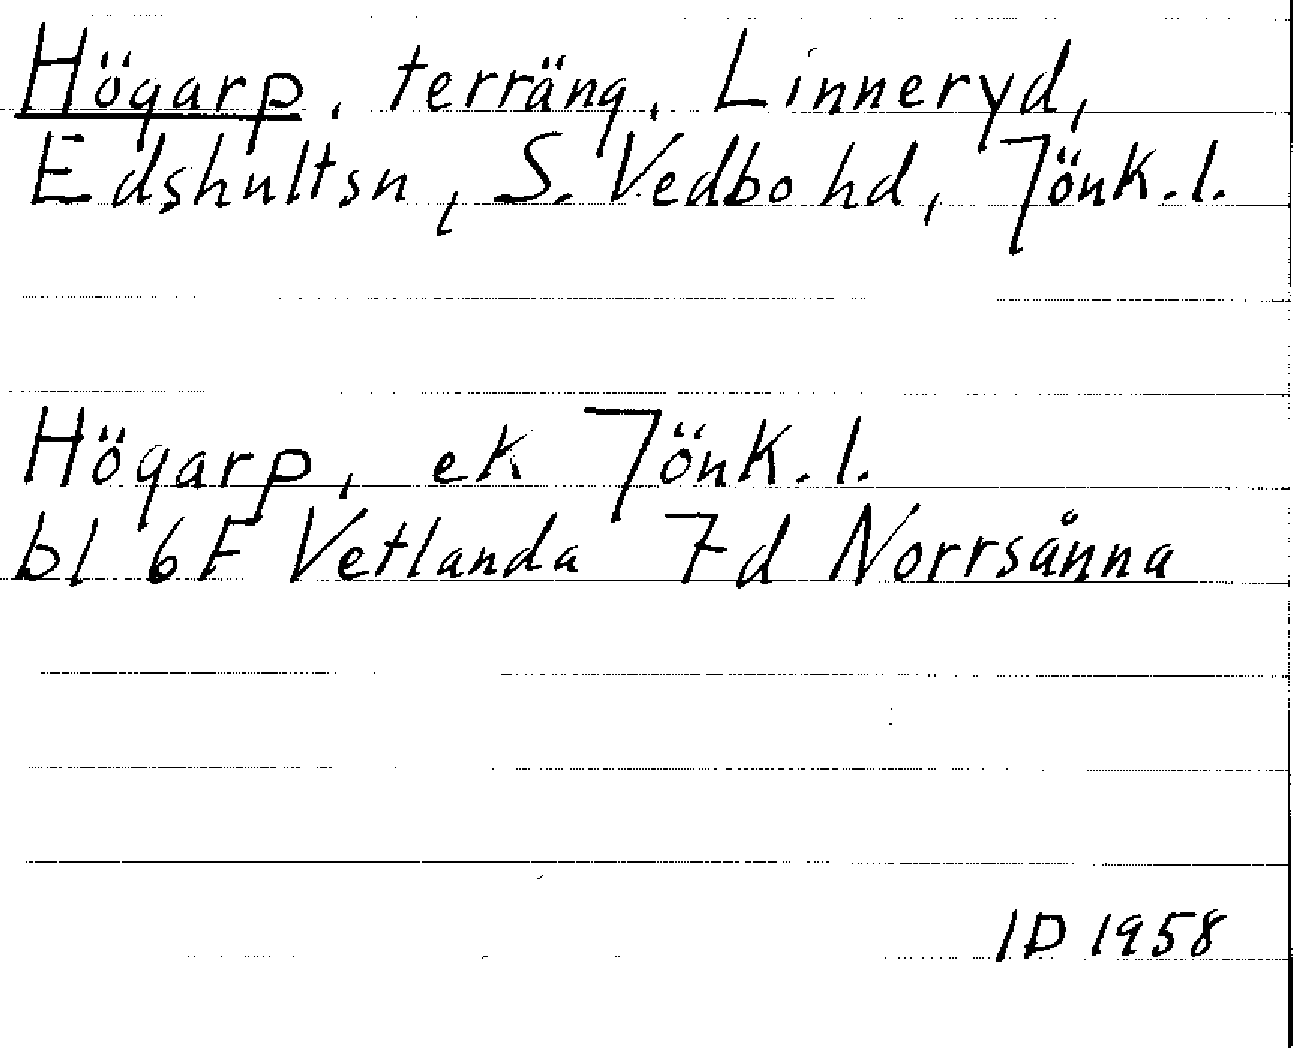 Högarp, terräng, Linneryd,
Edshultsn, S. Vedbo hd, Jönk.l.
Högarp, ek Jönk.l.
bl 6F Vetlanda 7d Norrsånna
ID 1958